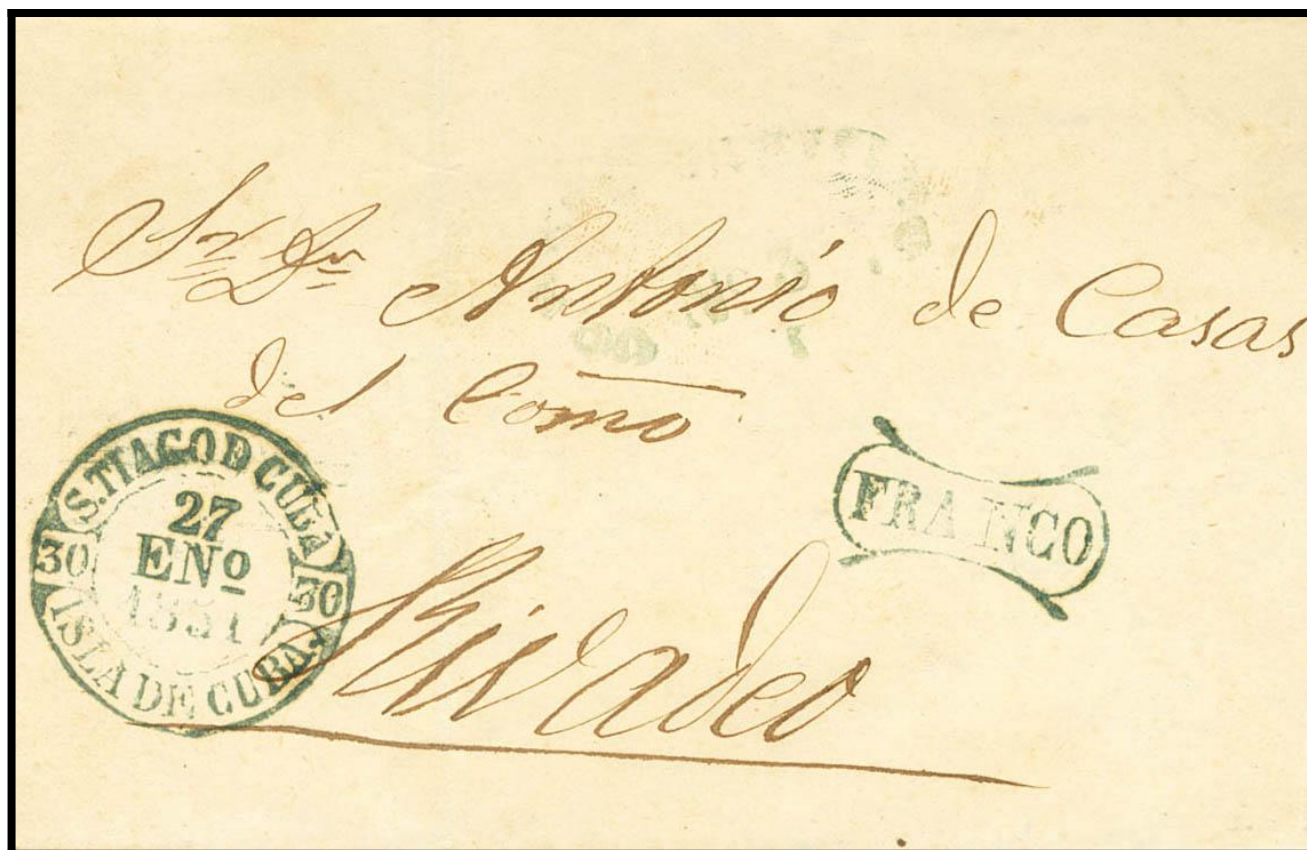 Sr Dn Antonio de Casas
del Como
S.TIAGO D CUBA
27
ENº
1851
30 30
ISLA DE CUBA.
FRANCO
Rivadeo